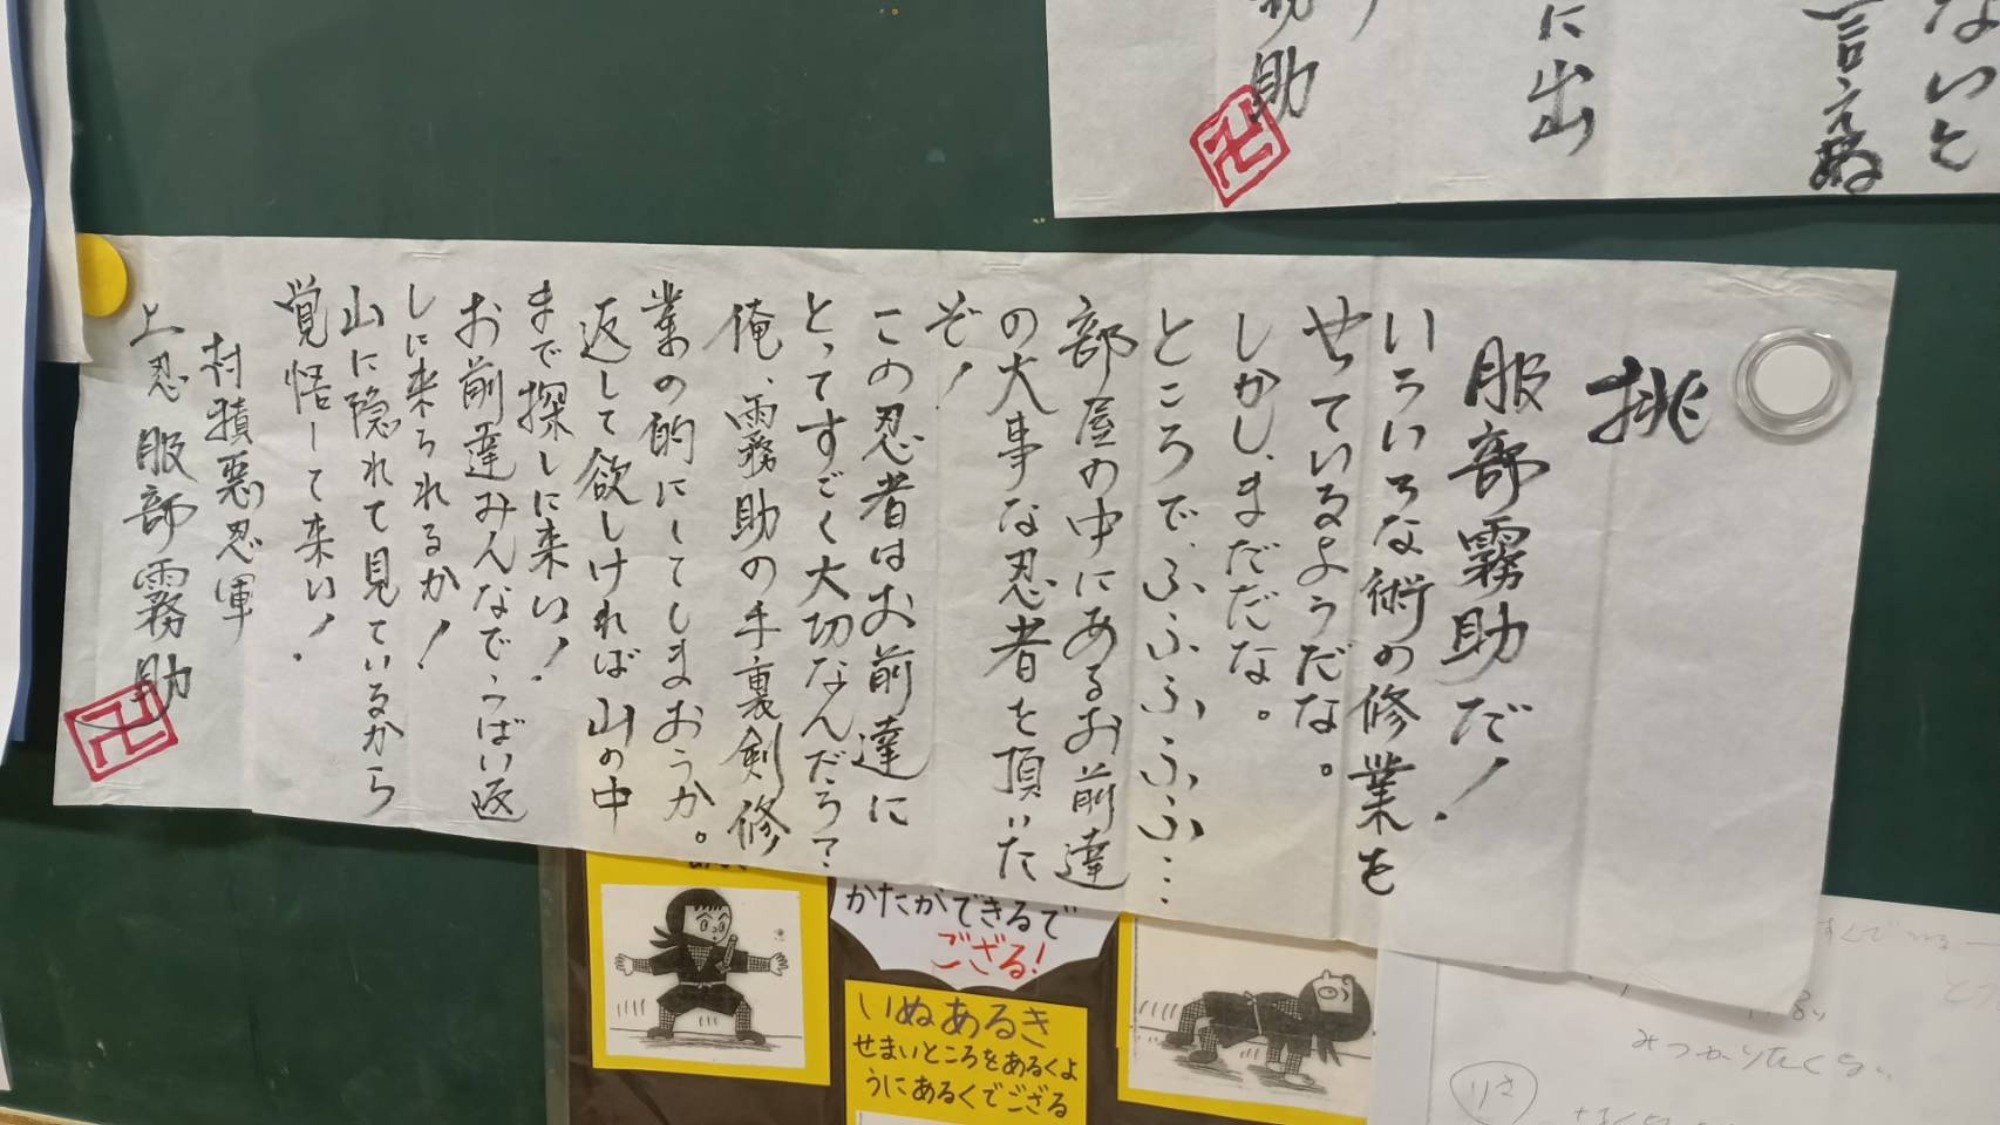 ないと
言えぬ
に出
助
卍
挑
服部霧助だ！
いろいろな術の修業を
せっているようだな。
しかし、まだだな。
ところで、ふ、ふ、ふ、ふ、ふ…
部屋の中にあるお前達
の大事な忍者を頂いた
ぞ！
この忍者はお前達に
とってすごく大切なんだろ？
俺、霧助の手裏剣修
業の的にしてしまおうか。
返して欲しければ山の中
まで探しに来い！
お前達みんなでうばい返
しに来られるか！
山に隠れて見ているから
覚悟して来い！
村積悪忍軍
上忍 服部霧助
卍
かたができるで
ござる！
いぬあるき
せまいところをあるくよ
うにあるくでござる
みつかりたくない
りさ